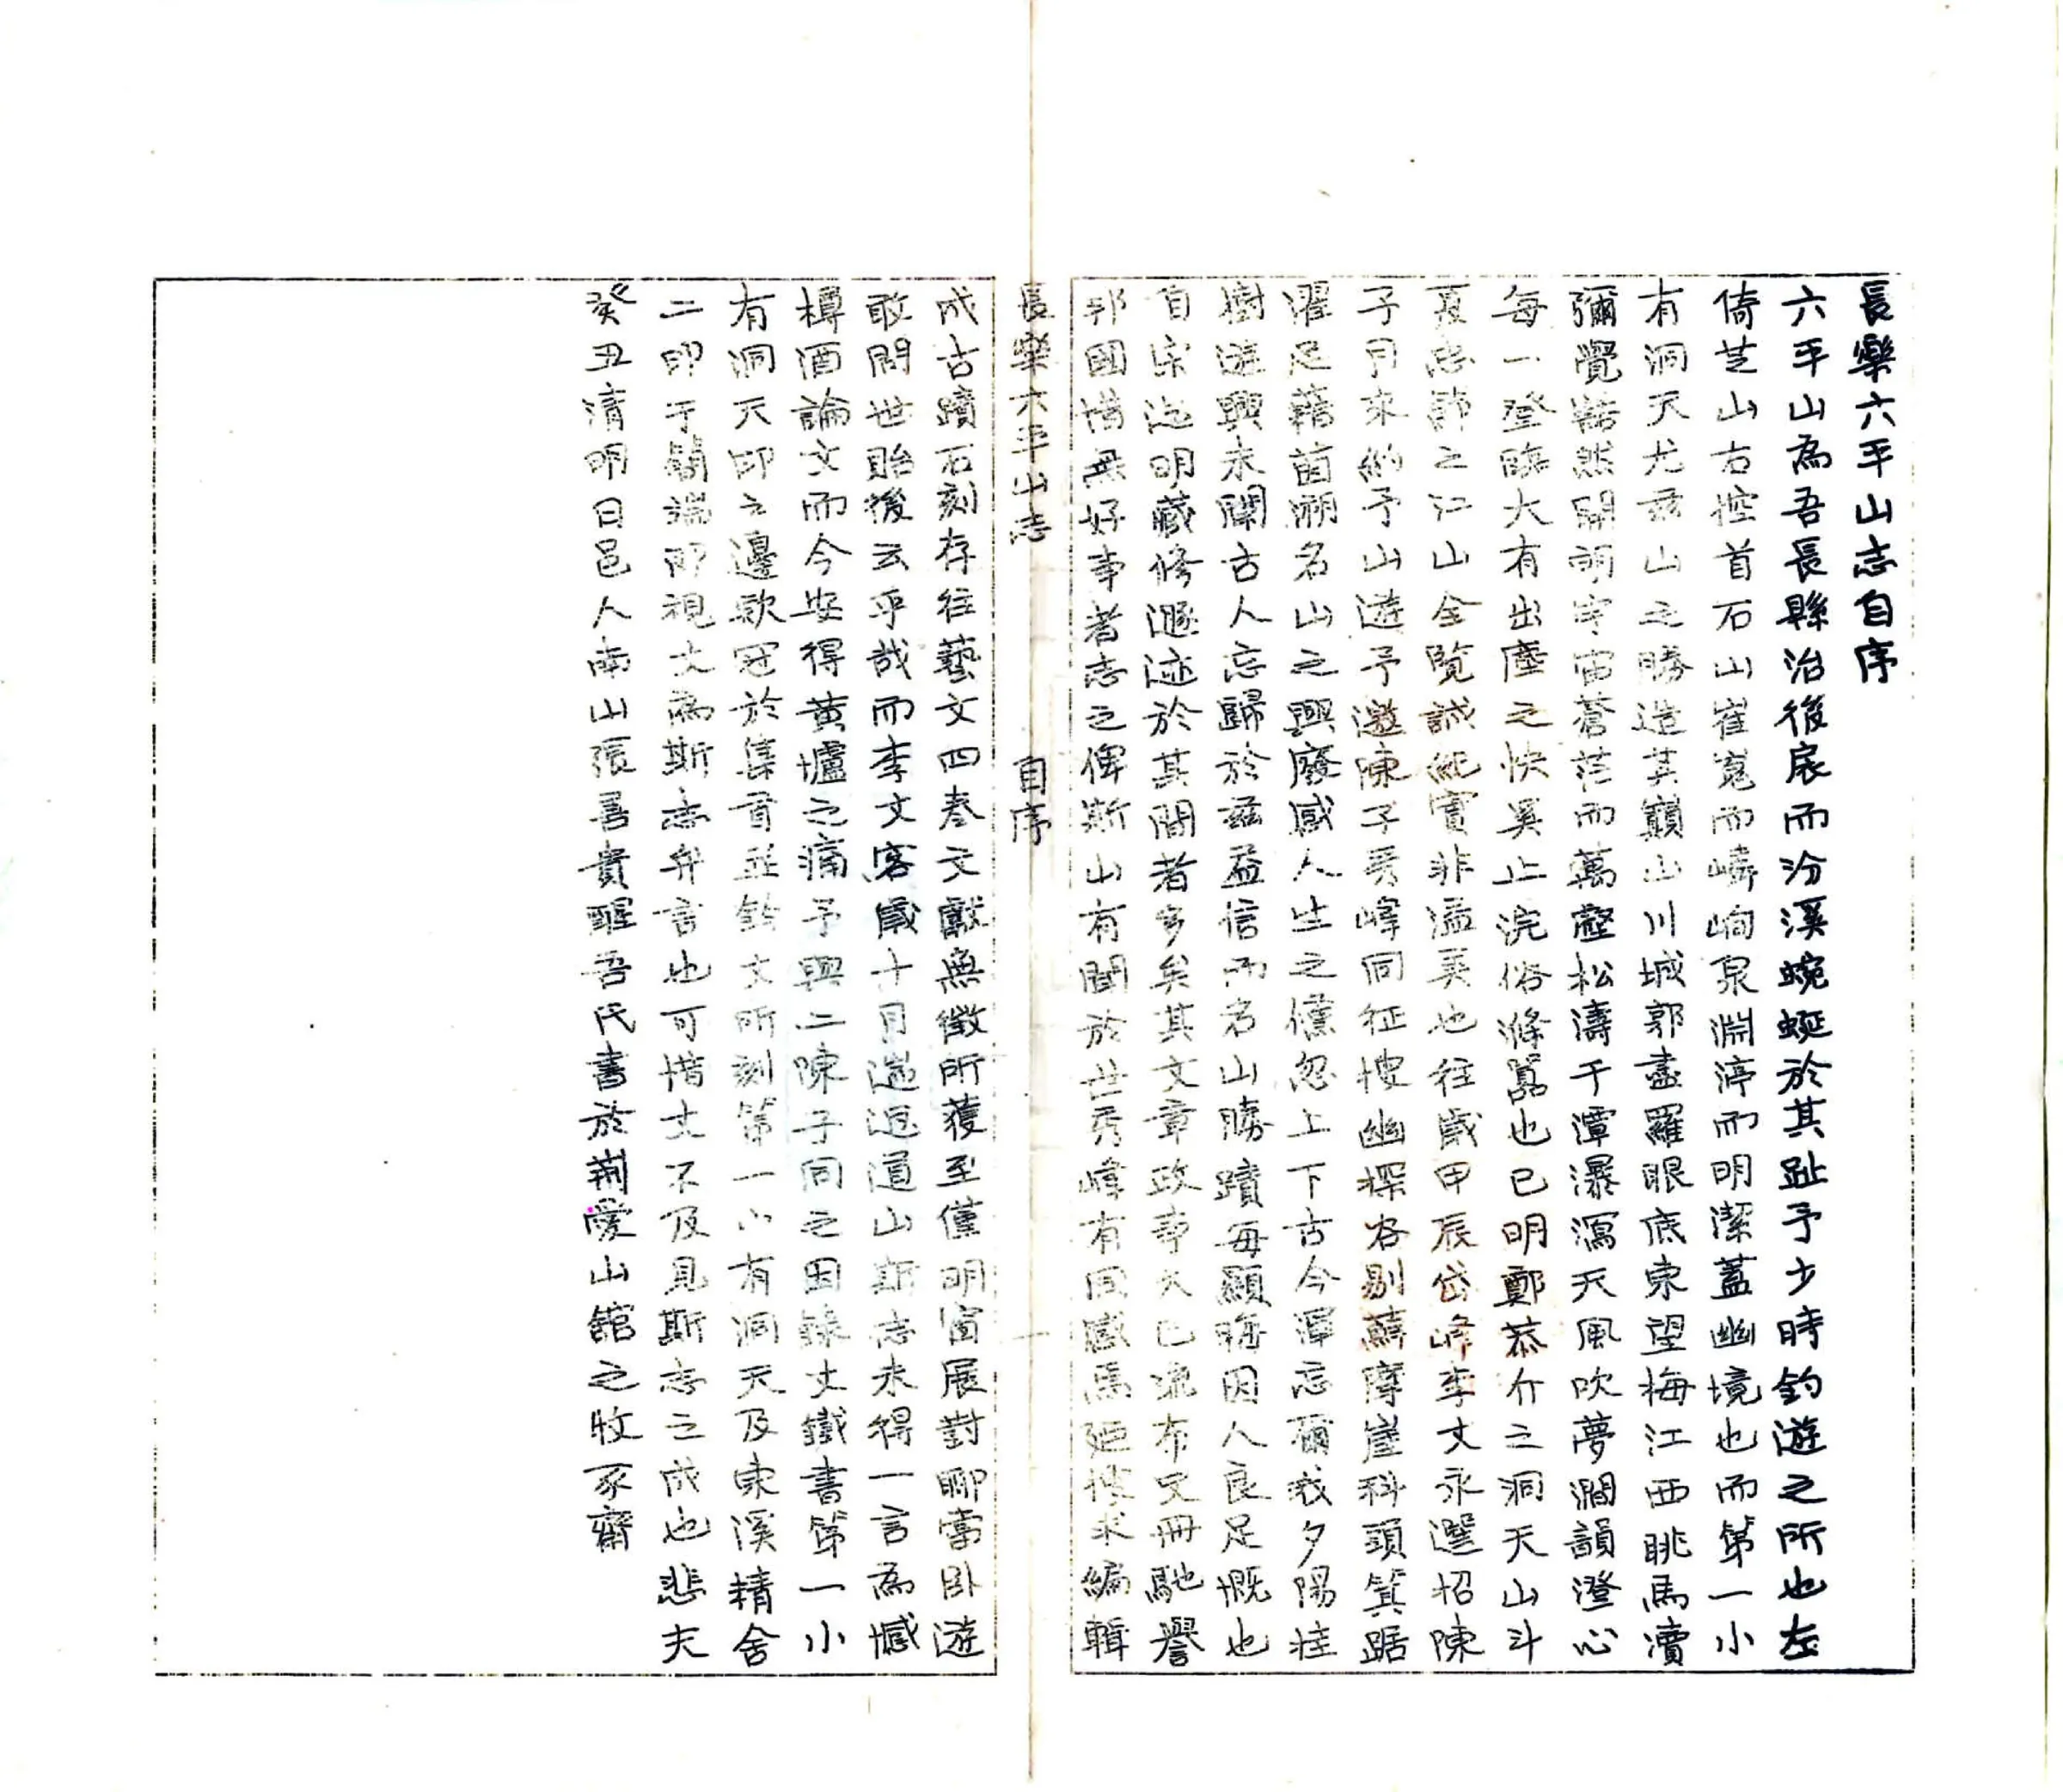 長樂六平山志自序
六平山為吾長縣治後扆而汾溪蜿蜒於其趾予少時釣遊之所也左
倚芝山右控首石山崔嵬而嶙峋泉淵渟而明潔蓋幽境也而第一小
有洞天尤為山之勝造其巔山川城郭盡羅眼底東望梅江西眺馬瀆
彌覺豁然開朗宇宙蒼茫而萬壑松濤千潭瀑瀉天風吹夢澗韻澄心
每一登臨大有出塵之快奚止浣俗滌囂也已明鄭恭介之洞天山斗
夏忠靖之江山全覽誠紀實非溢美也往歲甲辰岱峰李丈永選招陳
子月來約予山遊予邀陳子秀峰同征搜幽探谷剔蘚摩崖科頭箕踞
濯足藉茵溯名山之興廢感人生之儻忽上下古今渾忘爾我夕陽挂
樹遊興未闌古人忘歸於茲益信而名山勝蹟每顯晦因人良足慨也
自宋迄明藏修遯迹於其間者多矣其文章政事久已流布史冊馳譽
邦國惜無好事者志之俾斯山有聞於世秀峰有同感焉廼搜求編輯
長樂六平山志
自序
一
成古蹟石刻存往藝文四卷文獻無徵所獲至僅明窗展對聊當臥遊
敢問世貽後云乎哉而李丈客歲十月遄返道山斯志未得一言為憾
樽酒論文而今安得黃壚之痛予與二陳子同之因錄丈鐵書第一小
有洞天印之邊款冠於集首並鈐丈所刻第一小有洞天及東溪精舍
二印于簡端即視丈為斯志弁言也可惜丈不及見斯志之成也悲夫
癸丑清明日邑人南山張善貴醒吾氏書於荊愛山館之牧豕齋